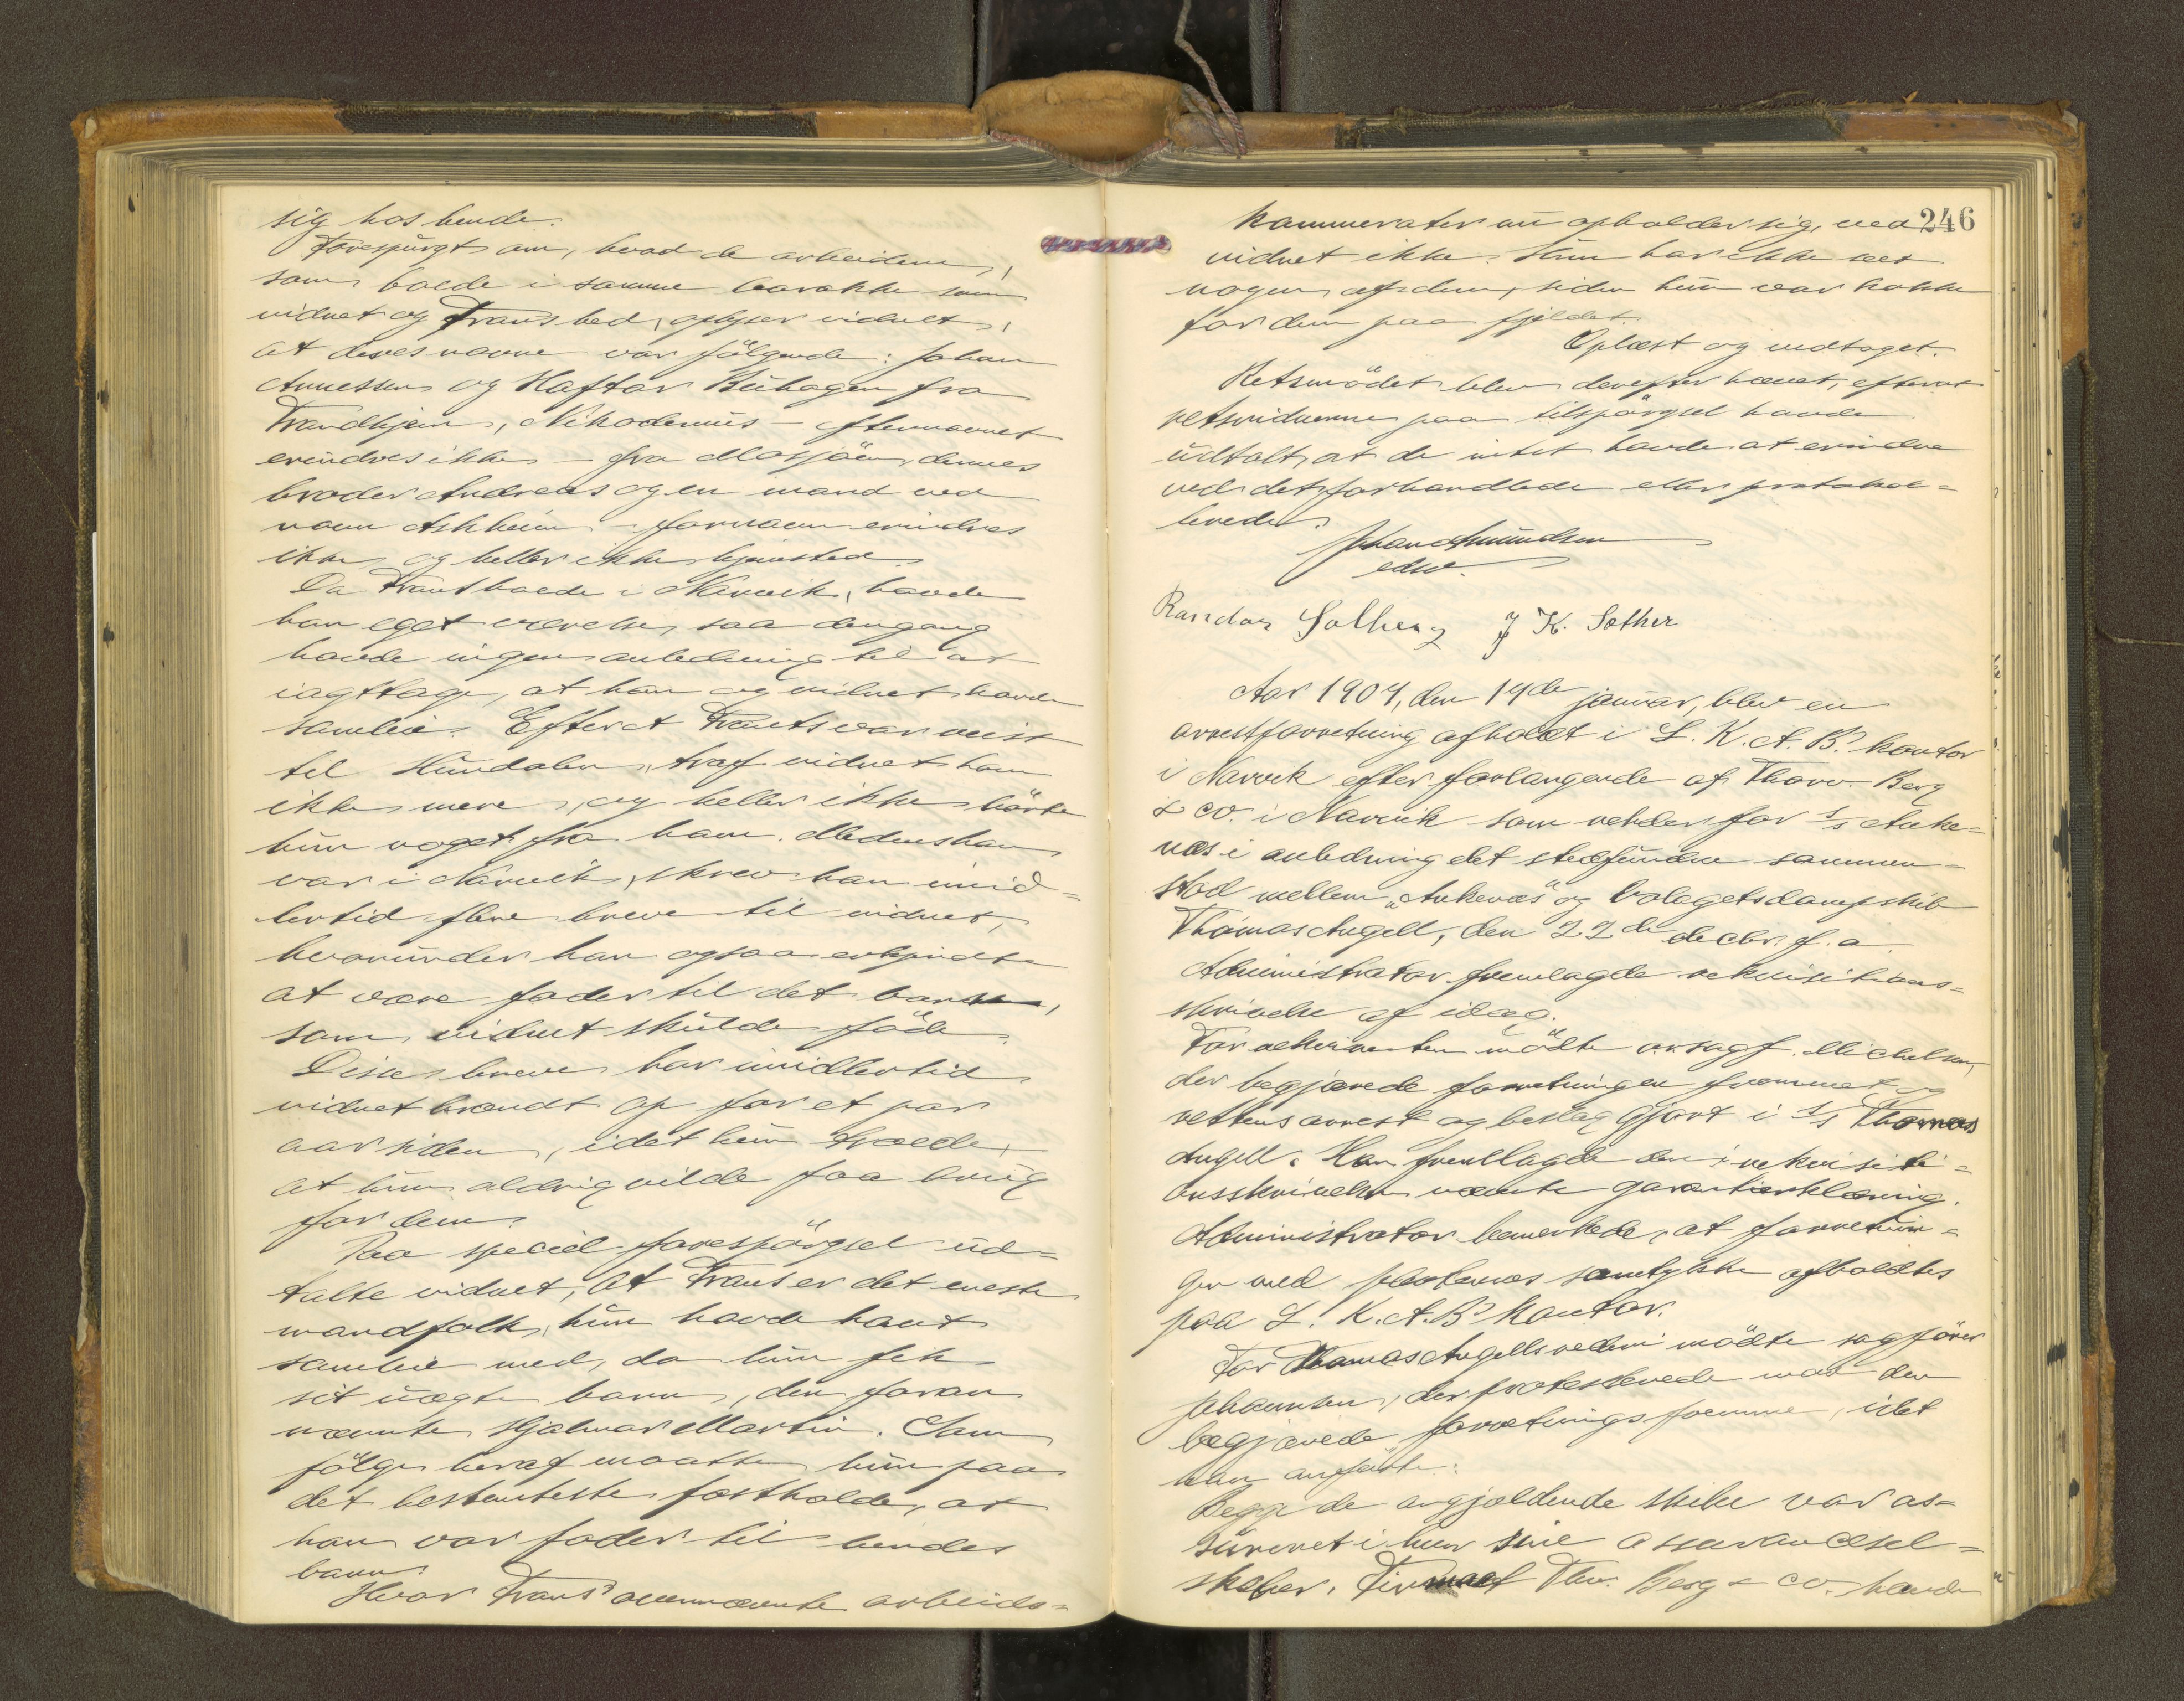 sig hos hende.
Forespurgt om, hvad de arbeidere,
som boede i samme barakke som
vidnet og Frans hed, oplyser vidnet,
at deres navne var følgende: Johan
Annessen og Haftor Buhagen fra
Trondhjem, Nikodemus – efternavnet
erindres ikke – fra Mosjøen, dennes
broder Andreas og en mand ved
navn Askheim – fornavn erindres
ikke og heller ikke hjemsted.
Da Frans boede i Narvik, havde
han eget værelse, saa dengang
havde ingen anledning til at
iagttage, at han og vidnet havde
samleie. Efterat Frants var reist
til Hundalen, traf vidnet ham
ikke mere, og heller ikke hørte
hun noget fra ham. Medens han
var i Narvik, skrev han imid=
lertid flere breve til vidnet,
hvorunder han ogsaa erkjendte
at være fader til det barn,
som vidnet skulde føde.
Disse breve har imidlertid
vidnet brændt op for et par
aar siden, idet hun troede,
at hun aldrig vilde faa brug
for dem.
Paa speciel forespørgsel ud=
talte vidnet, at Frans er det eneste
mandfolk, hun havde havt
samleie med, da hun fik
sit uægte barn, den foran
nævnte Hjalmar Martin. Som
følge heraf maatte hun paa
det bestemteste fastholde, at
han var fader til hendes
barn.
Hvor Frans' ovennævnte arbeids=
246
kammerater nu opholder sig, ved
vidnet ikke. Hun har ikke seet
nogen af dem, siden hun var kokke
for dem paa fjeldet.
Oplæst og vedtaget.
Retsmødet blev derefter hævet, efterat
retsvidnerne paa tilspørgsel havde
udtalt, at de intet havde at erindre
ved det forhandlede eller protokol=
lerede.
Johan Amundsen
edsv.
Randor Solberg J K. Sæther
Aar 1907, den 14de januar, blev en
arrestforretning afholdt i L. K. A. B. kontor
i Narvik efter forlangende af Thorv. Berg
& co. i Narvik som rehder for s/s Anke=
nes i anledning det stedfundne sammen=
stød mellem "Ankenes" og bolagets dampskib
Thomas Angell, den 22de decbr. f. a.
Administrator fremlagde rekvisitions=
skrivelse af idag.
For rekvirenten mødte o.r.sagf. Michelsen,
der begjærede forretningen fremmet og
rettens arrest og beslag gjort i s/s Thomas
Angell. Han fremlagde den i rekvisiti=
onsskrivelsen nævnte garantierklæring.
Administrator bemerkede, at forretnin=
gen med parternes samtykke afholdtes
paa L. K. A. B' kontor.
For Thomas Angells rederi mødte sagfører
Johannsen, der protesterede mod den
begjærede forretnings fremme, idet
han anførte:
Begge de angjældende skibe var as=
sureret i hver sine assurancesel=
skaber. Firmaet Thv. Berg & co. havde